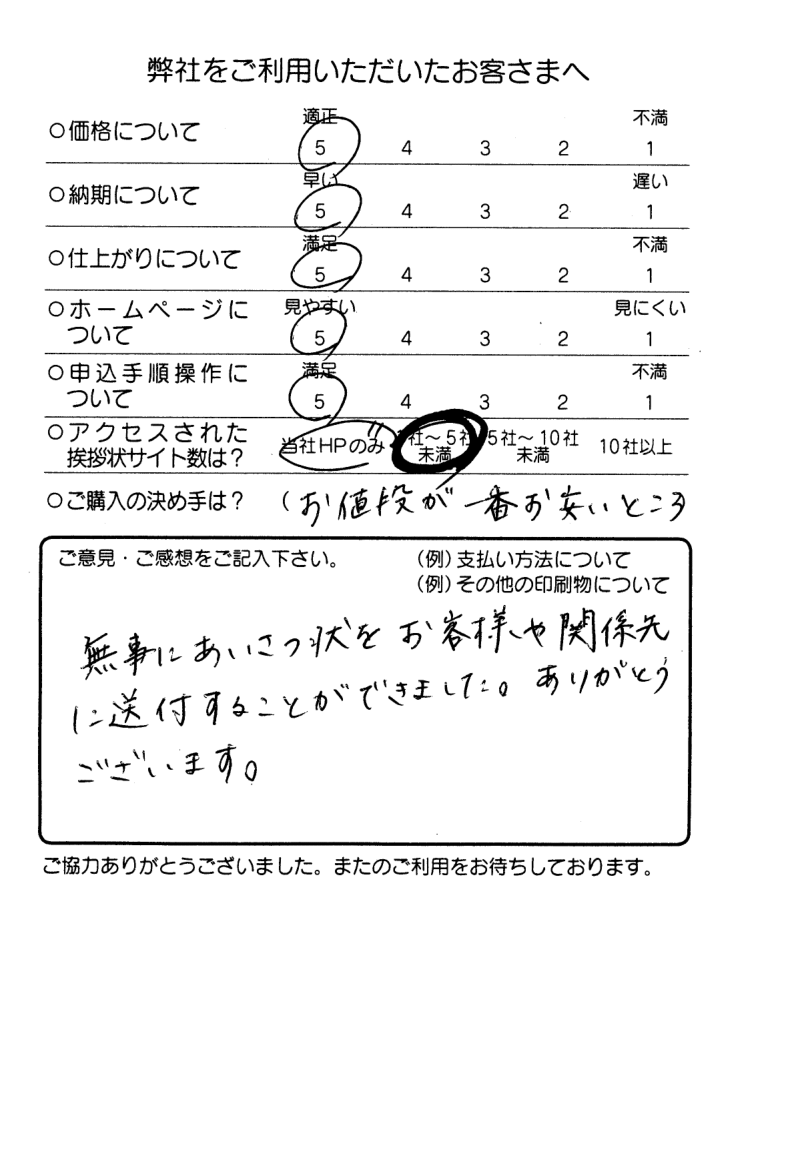 弊社をご利用いただいたお客さまへ
適正 不満
○価格について 5 4 3 2 1
早い 遅い
○納期について 5 4 3 2 1
満足 不満
○仕上がりについて 5 4 3 2 1
見やすい 見にくい
○ホームページに
ついて 5 4 3 2 1
満足 不満
○申込手順操作に
ついて 5 4 3 2 1
○アクセスされた
挨拶状サイト数は? 当社HPのみ 1社～5社未満 5社～10社未満 10社以上
○ご購入の決め手は? (お値段が一番お安いところ
ご意見・ご感想をご記入下さい。 (例)支払い方法について
(例)その他の印刷物について
無事にあいさつ状をお客様や関係先
に送付することができました。ありがとう
ございます。
ご協力ありがとうございました。またのご利用をお待ちしております。